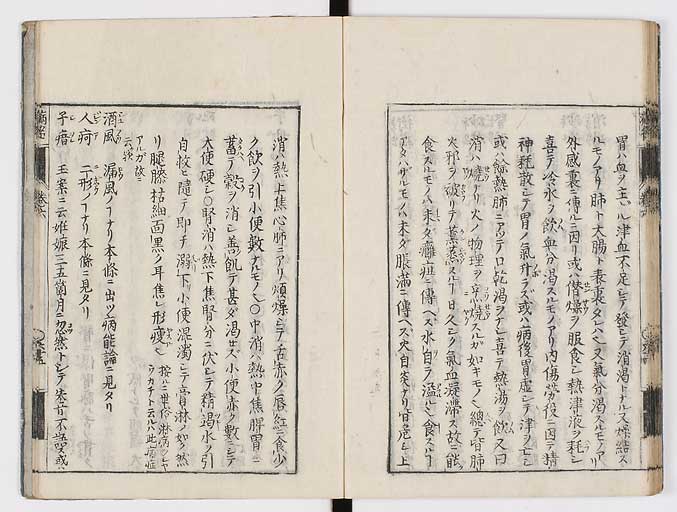 胃ハ血ヲ主ル津血不足シテ發シテ消渇トナル又燥結ス
ルモノアリ肺ト大腸ト表裏タレバ也又氣分渇スルモノアリ
外感裏ニ傳ルニ因リ或ハ僣燥ヲ服食シ熱津液ヲ耗シ
喜テ冷水ヲ飲血分渇スルモノアリ内傷勞役ニ因テ精
神耗散シテ胃ノ氣升ラズ或ハ病後胃虚シテ津ヲ亡シ
或ハ餘熱肺ニアツテ口乾渇ヲナシ喜テ熱湯ヲ飲又曰
消ハ燒ナリ火ノ物理ヲ烹燒スルガ如キモノ也總テ皆肺
火邪ヲ破リテ薫蒸スルヿ日久シク氣血凝滯ス故ニ能
食スルモノハ末ダ癰疽ニ傳ヘズ水自ラ溢レ食スルヿ
アタハザルモノハ末ダ脹滿ニ傳ヘズ火自炎ナリ皆危シ上
消ハ熱上焦心肺ニアリ煩燥シテ舌赤ク唇紅ニ食少
ク飲ヲ引小便數ナルモノ也○中消ハ熱中焦脾胃ニ
蓄テ穀ヲ消シ善飢テ甚ダ渇セズ小便赤ク數ニシテ
大便硬シ○腎消ハ熱下焦腎分ニ伏シテ精竭水ヲ引
自救ヒ隨テ即チ溺下小便混濁シテ膏淋ノ如ク然
リ腿膝枯細面黒ク耳焦レ形瘦ル
按ルニ世俗淋病ヲシヤ
ラカチト云ハ此病症
アルガ故ニ
云ヘ
酒風 漏風ノヿナリ本條ニ出ツ病能論ニ見タリ
人疴 二形ノヿナリ本條ニ見タリ
子瘖 玉案ニ云姙娠三五箇月ニ忽然トシテ失音不語或ハ